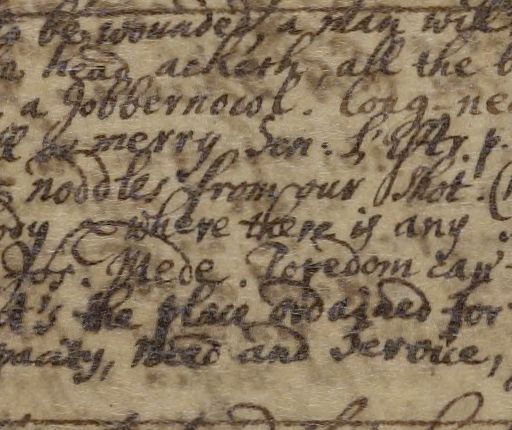 be wounded, a man will
head acheth, all the b
a Jobbernowl. long-ne
merry Sen: L'Est. p.
noddles from our shot. (
ody where there is any
Jos. Mede. Icredom can
t's the place ordained for
pacity, Need and Service,